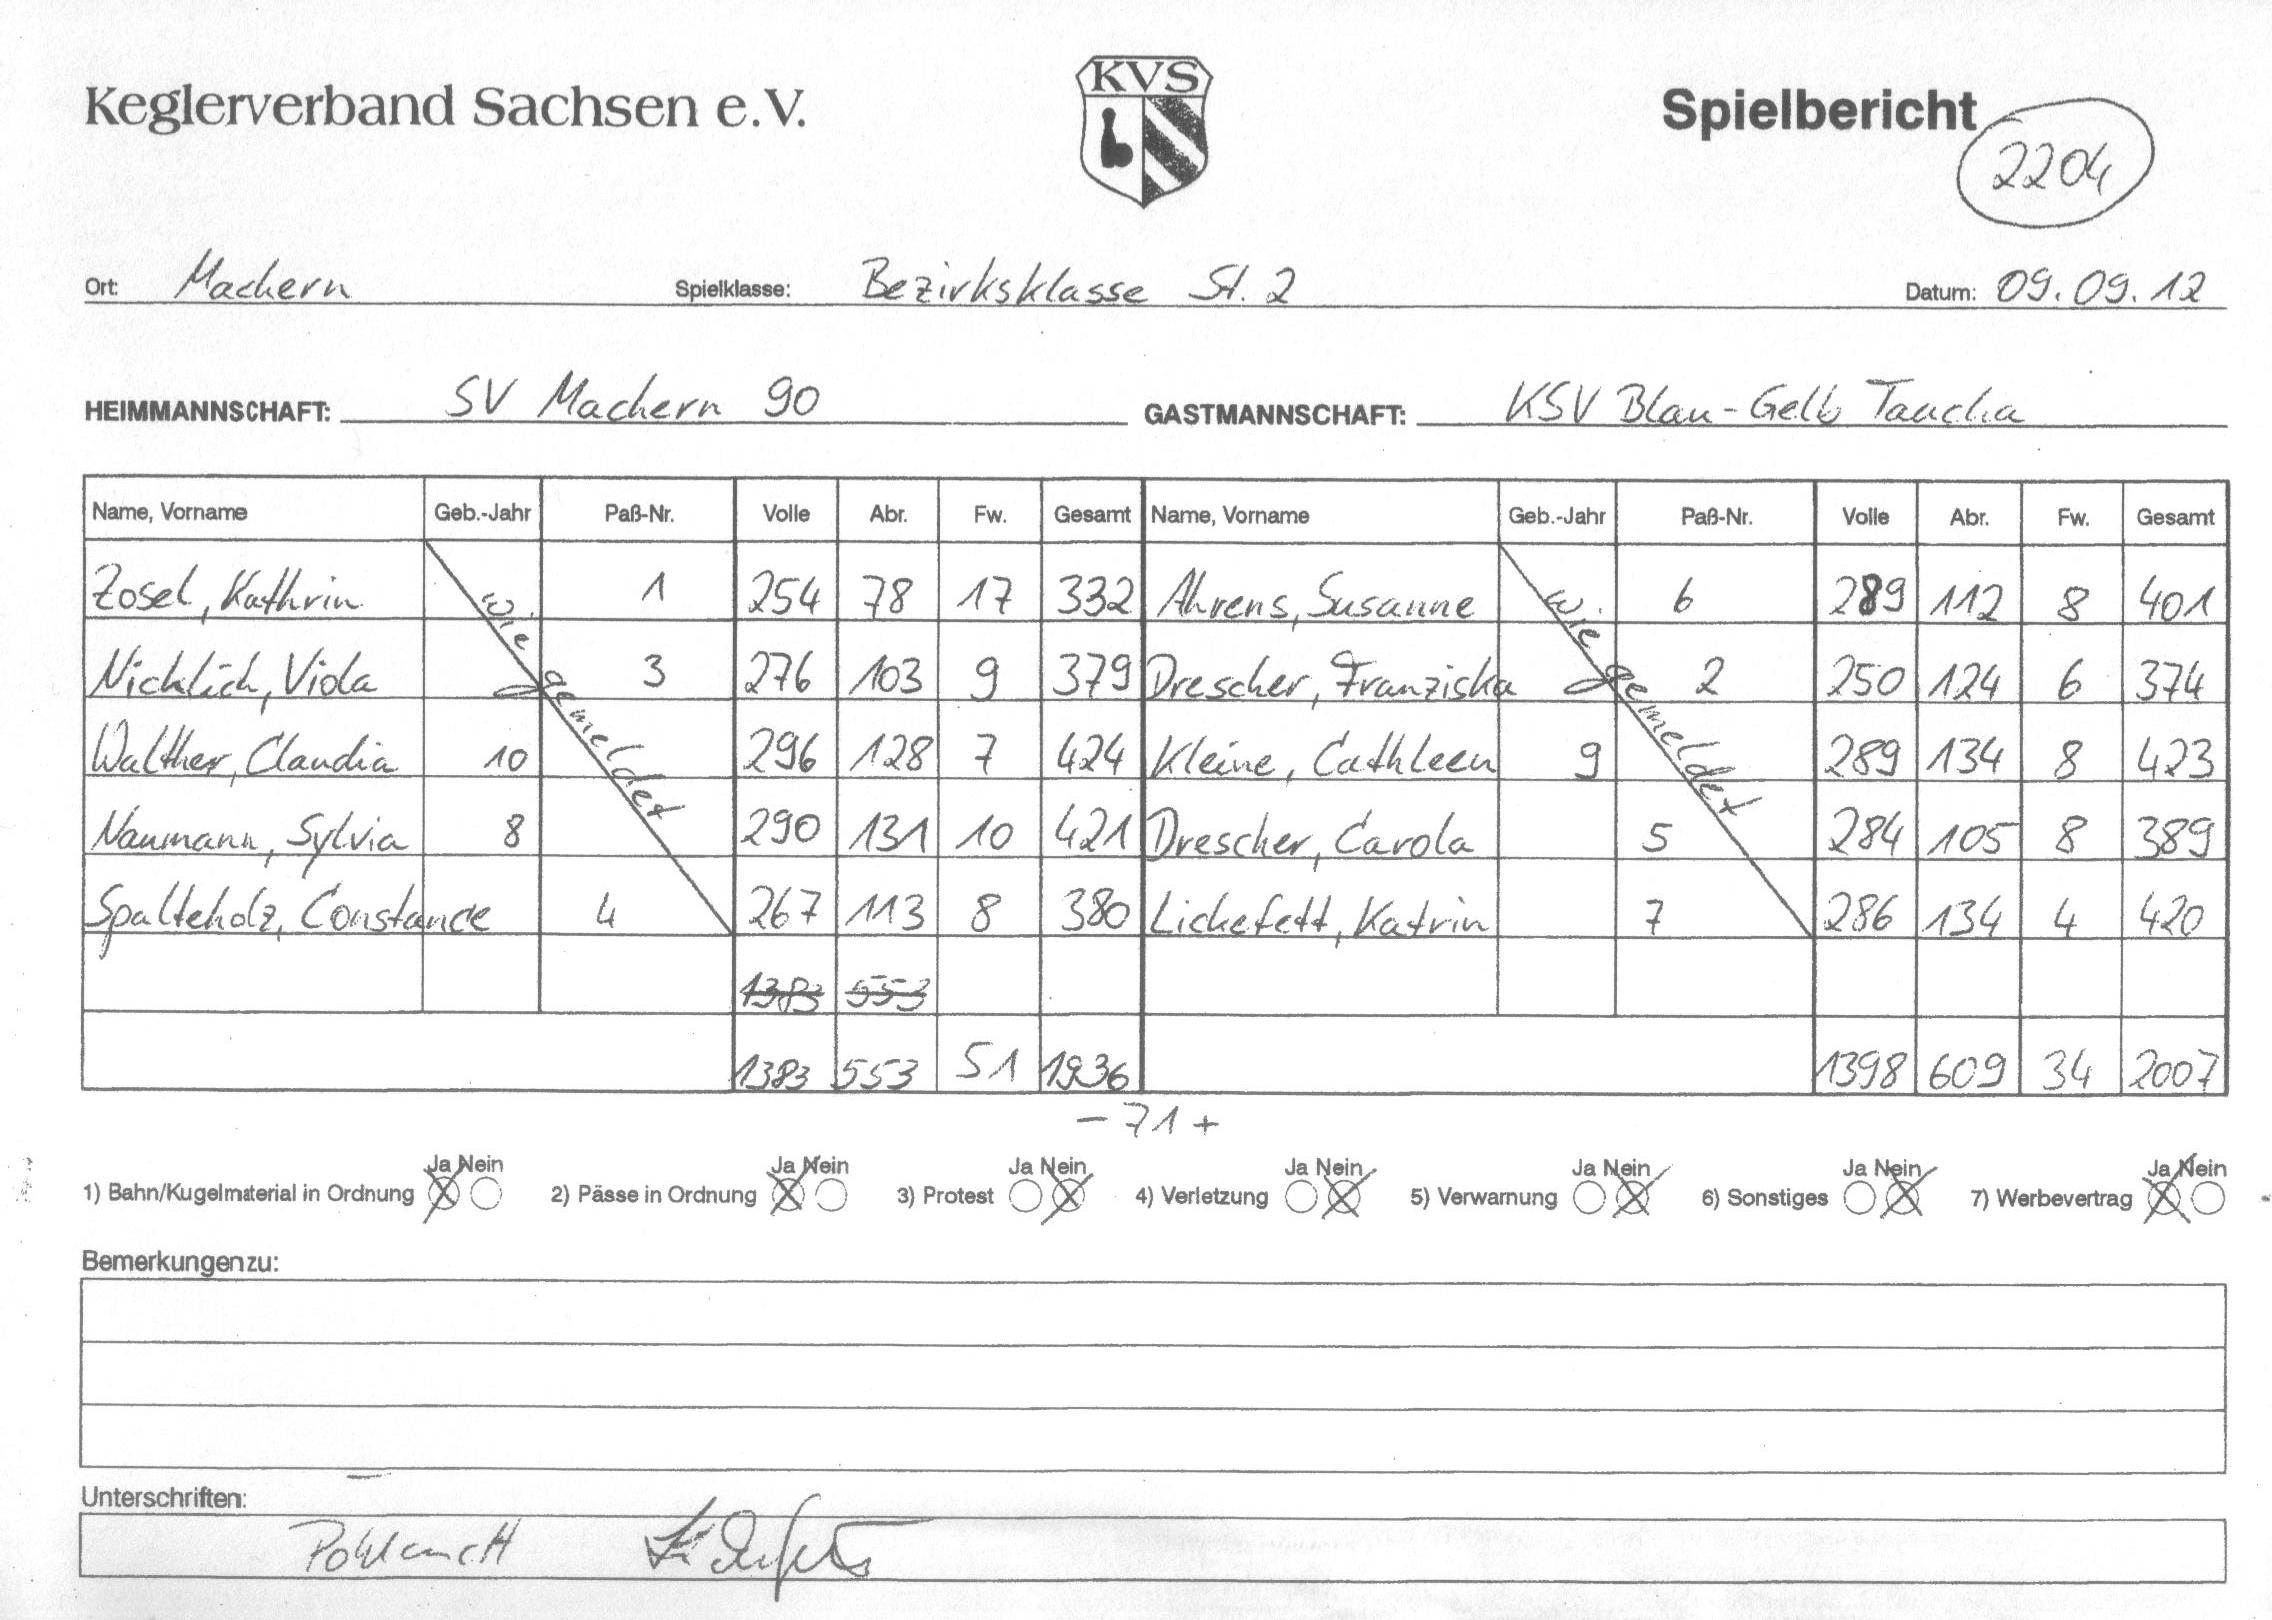 Keglerverband Sachsen e.V.
KVS
Spielbericht
2204
Ort: Machern Spielklasse: Bezirksklasse St. 2 Datum: 09.09.12
HEIMMANNSCHAFT: SV Machern 90 GASTMANNSCHAFT: KSV Blau-Gelb Taucha
Name, Vorname Geb.-Jahr Paß-Nr. Volle Abr. Fw. Gesamt Name, Vorname Geb.-Jahr Paß-Nr. Volle Abr. Fw. Gesamt
Zosel, Kathrin 1 254 78 17 332 Ahrens, Susanne 6 289 112 8 401
wie gemeldet wie gemeldet
Nicklich, Viola 3 276 103 9 379 Drescher, Franziska 2 250 124 6 374
Walther, Claudia 10 296 128 7 424 Kleine, Cathleen 9 289 134 8 423
Naumann, Sylvia 8 290 131 10 421 Drescher, Carola 5 284 105 8 389
Spalteholz, Constance 4 267 113 8 380 Lickefett, Katrin 7 286 134 4 420
1383 553
1383 553 51 1936 1398 609 34 2007
- 71 +
Ja Nein Ja Nein Ja Nein Ja Nein Ja Nein Ja Nein Ja Nein
1) Bahn/Kugelmaterial in Ordnung 2) Pässe in Ordnung 3) Protest 4) Verletzung 5) Verwarnung 6) Sonstiges 7) Werbevertrag
Bemerkungen zu:
Unterschriften: